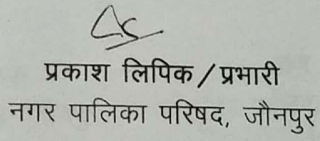 प्रकाश लिपिक / प्रभारी
नगर पालिका परिषद, जौनपुर